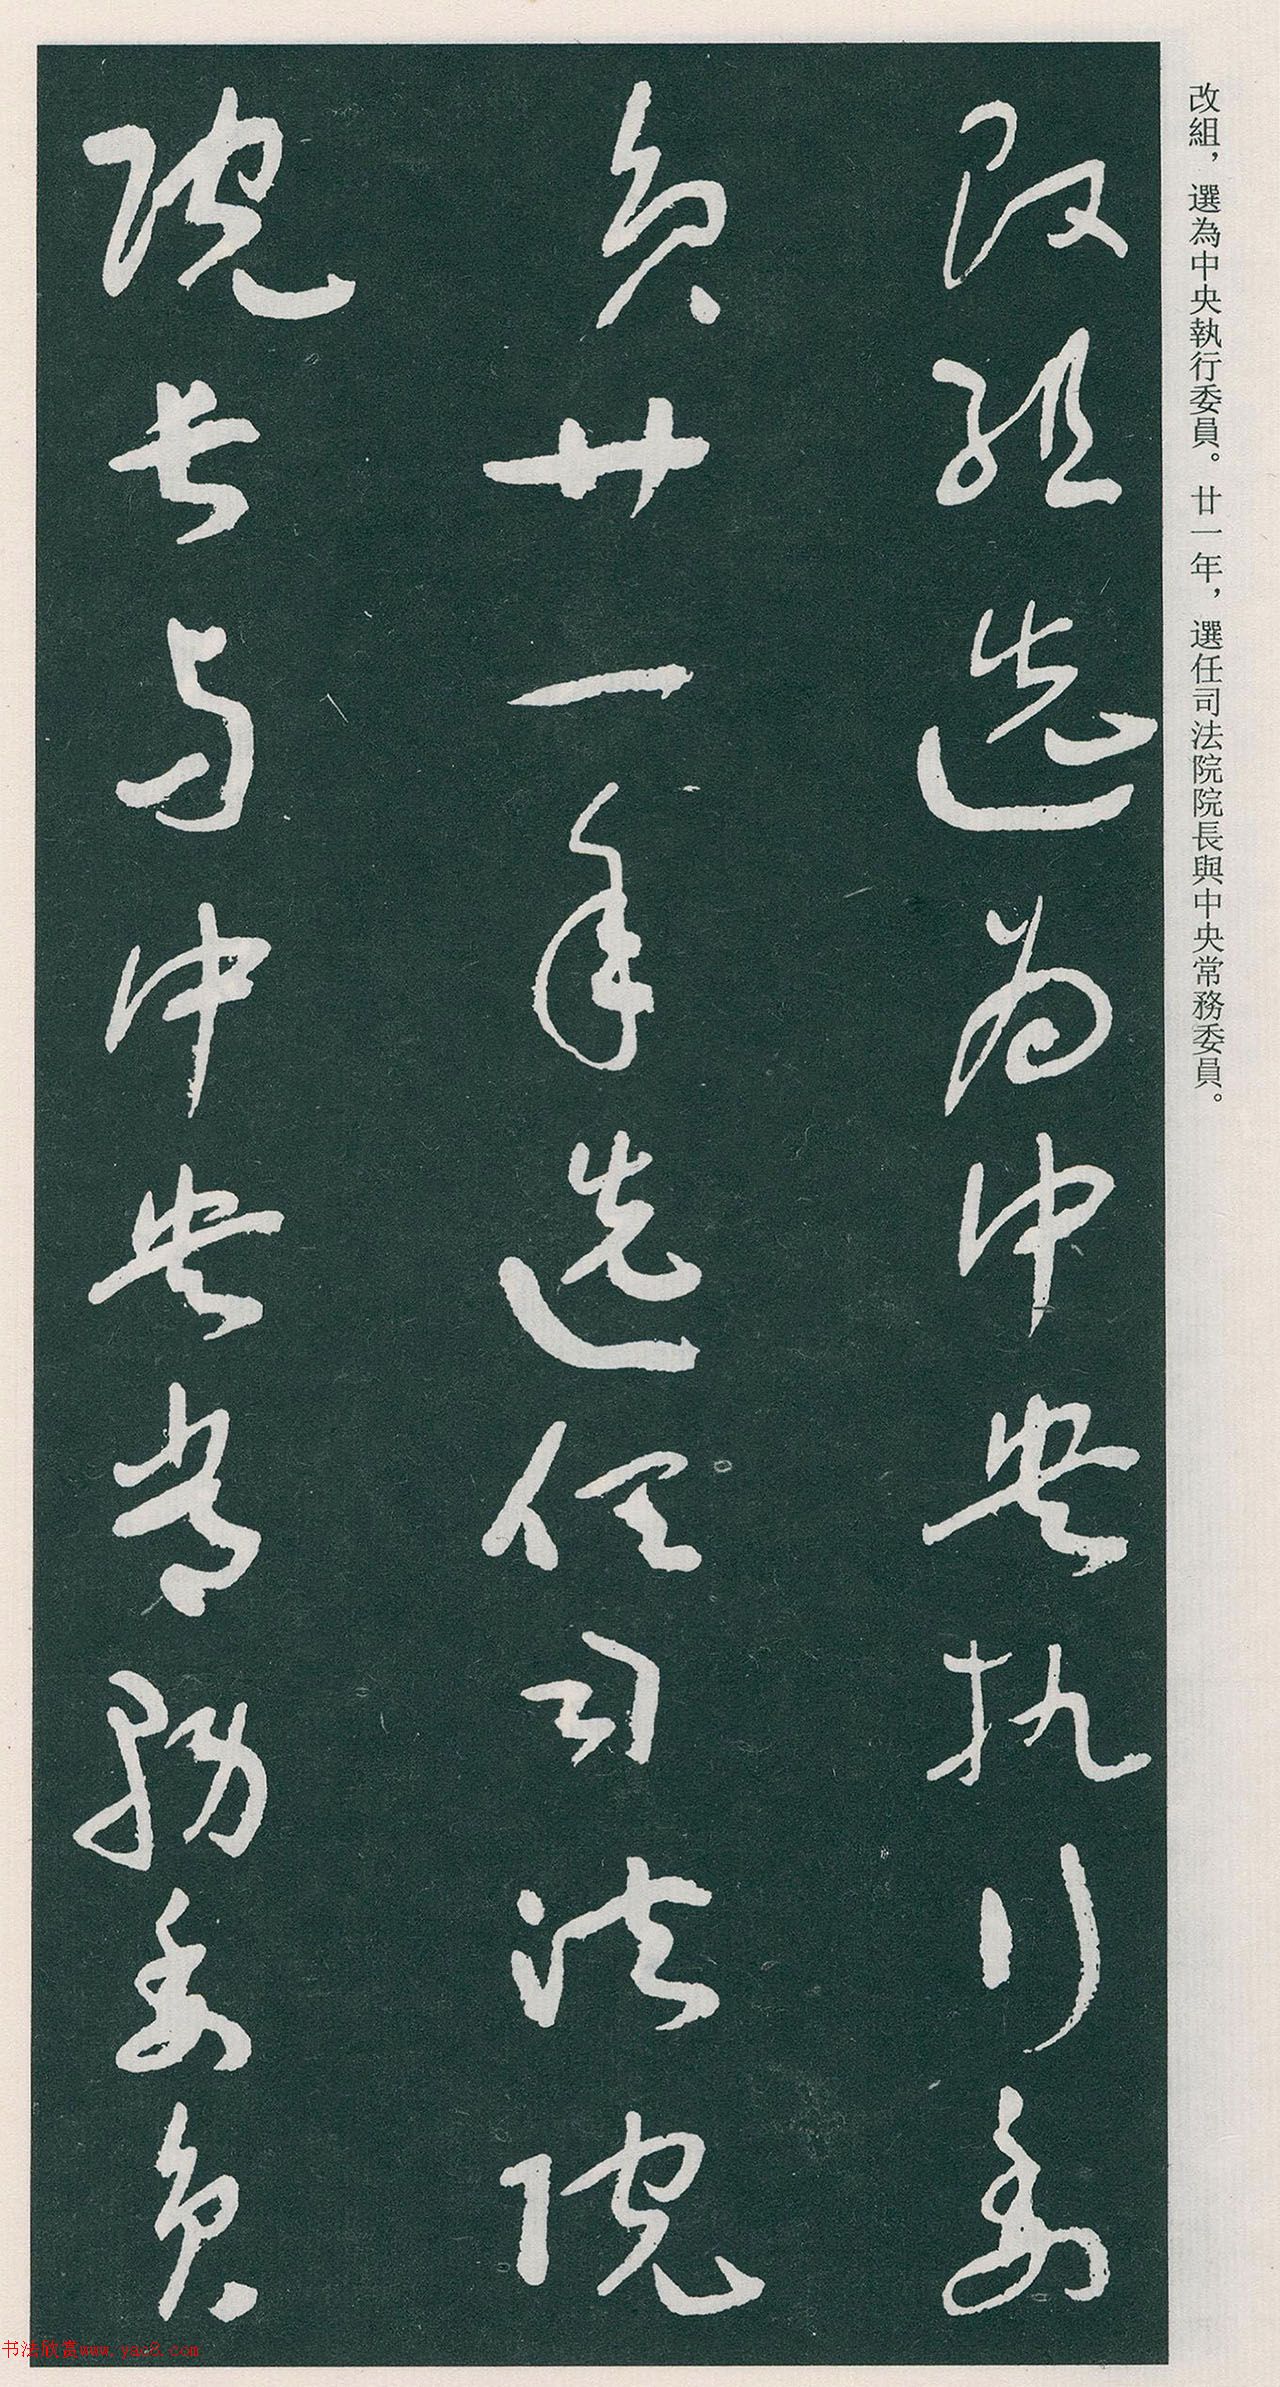 改組，選為中央執行委員。廿一年，選任司法院院長與中央常務委員。
改組選為中央执行委
員廿一年選任司法院
院長與中央常務委員
书法欣赏www.yac8.com